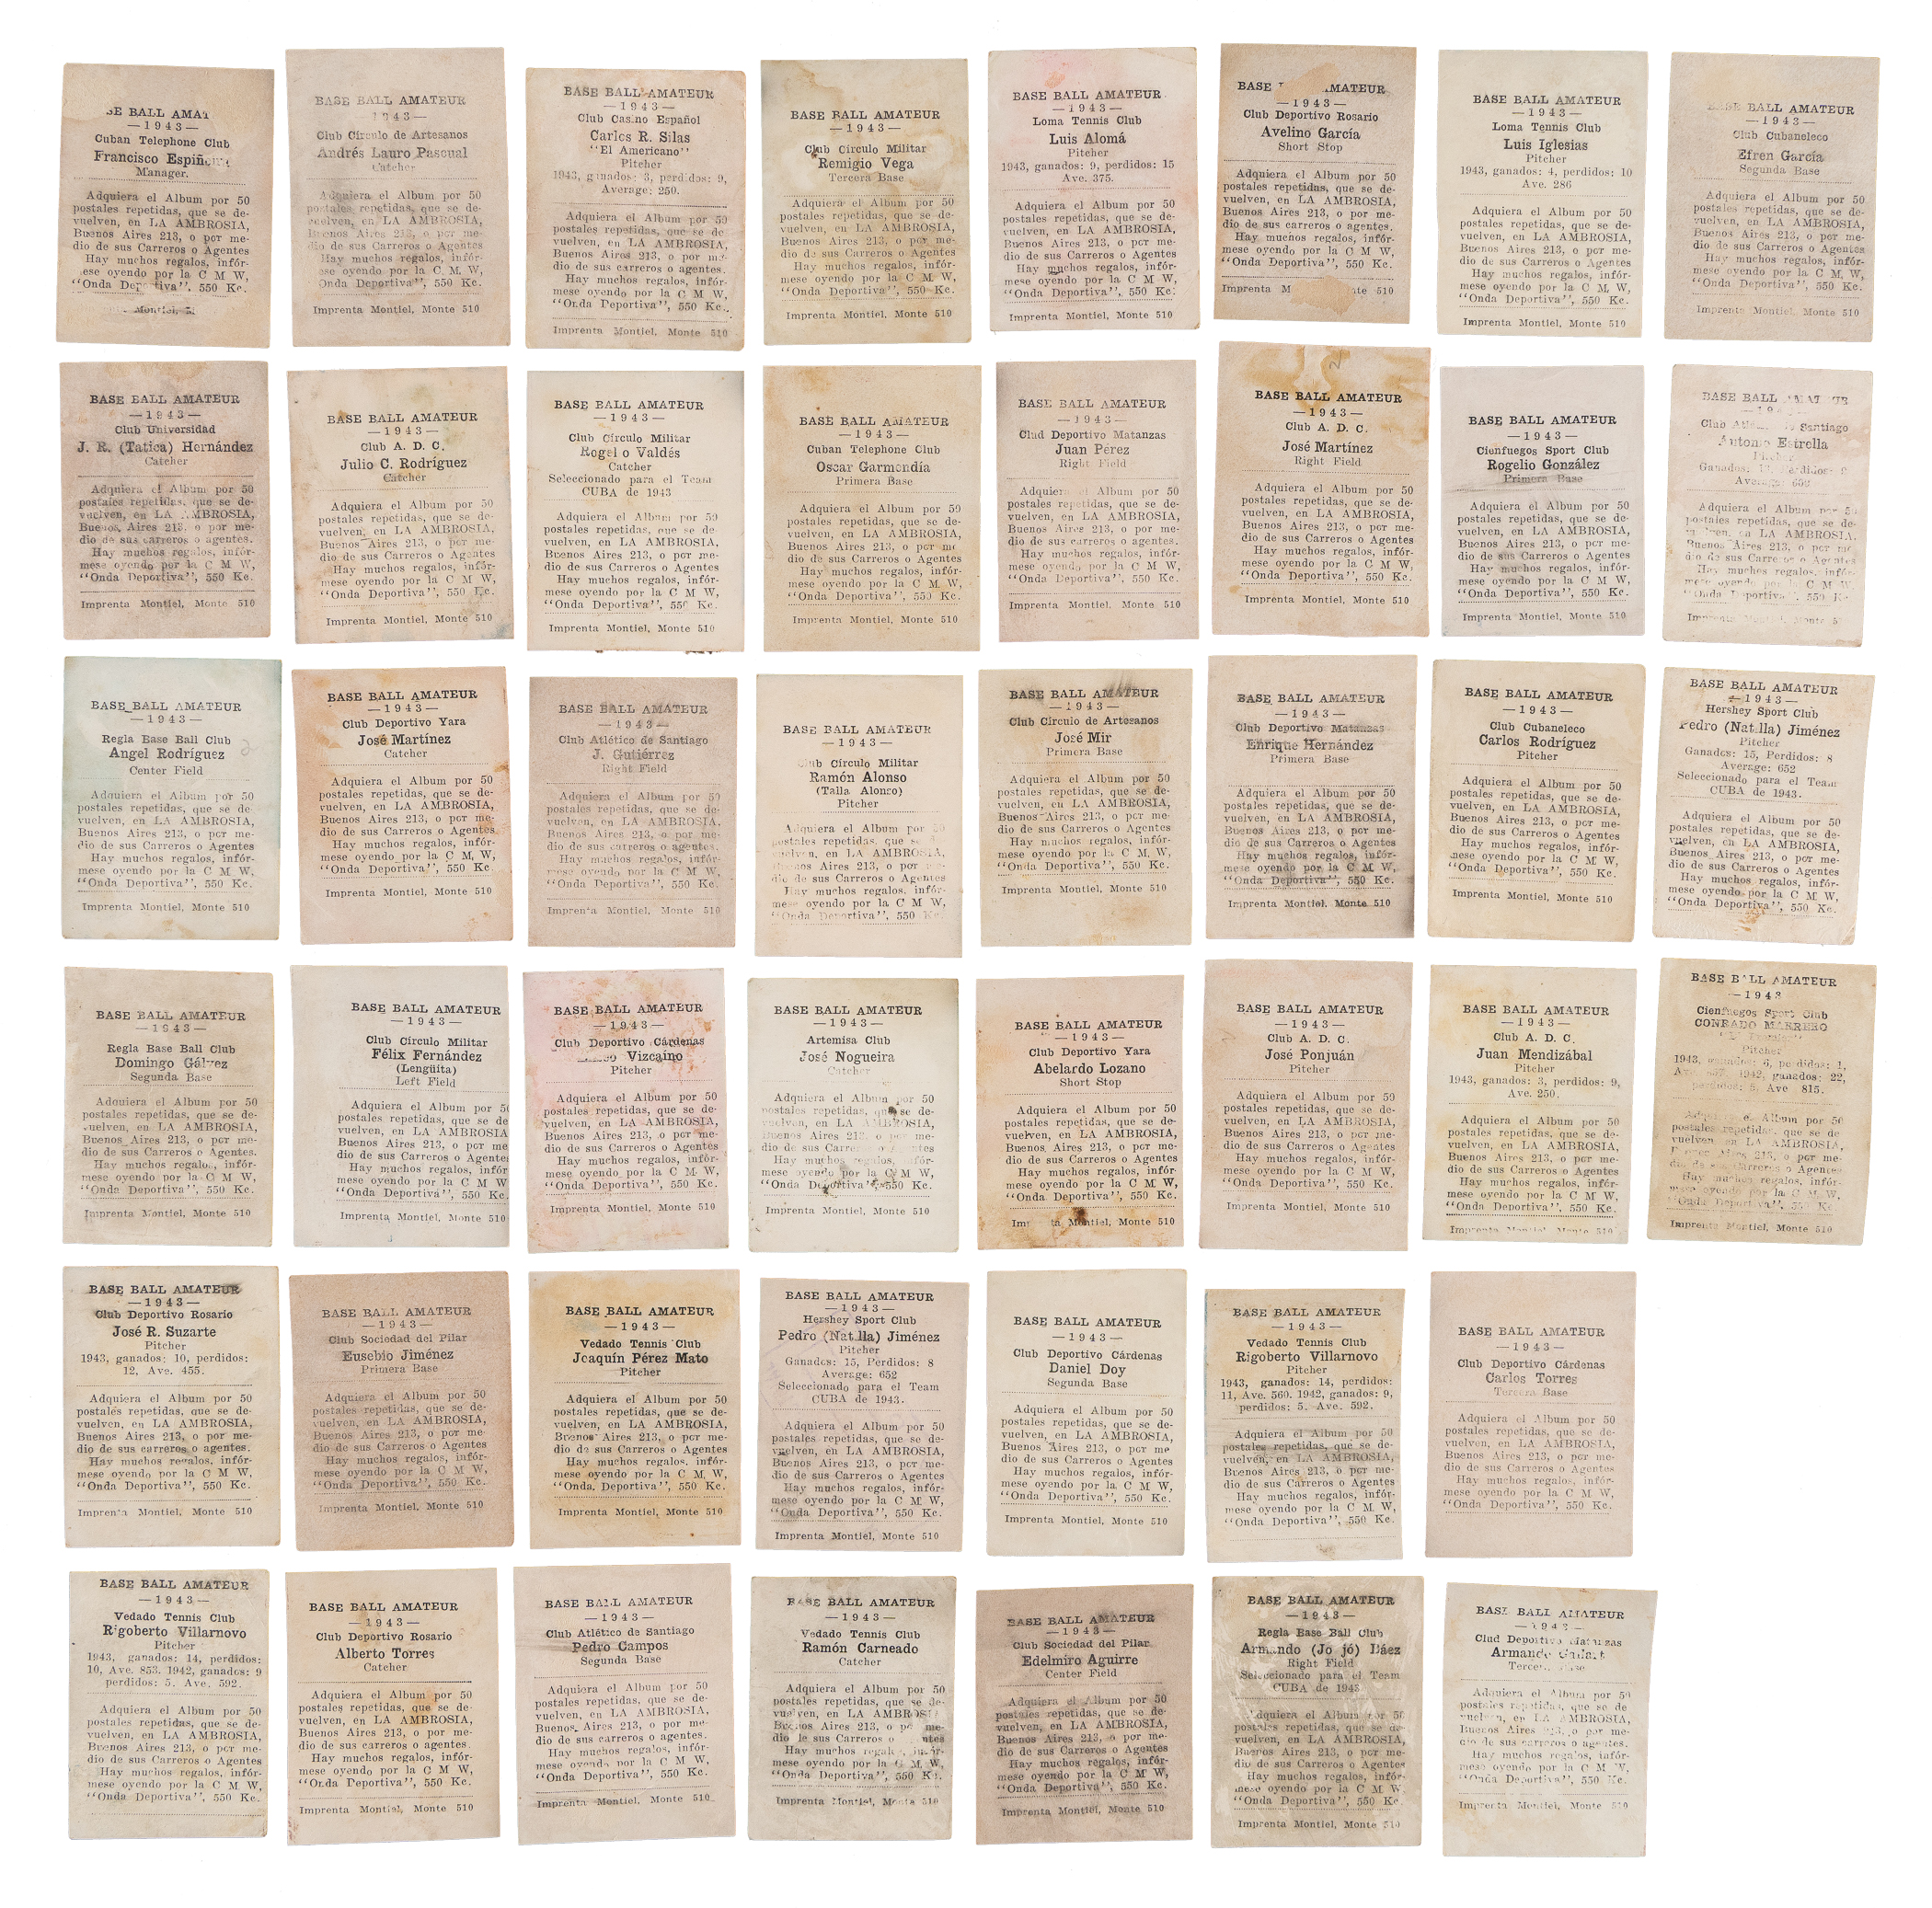 SE BALL AMAT
—1943—
Cuban Telephone Club
Francisco
Manager.
Adquiera el Album por 50
postales repetidas, que se de-
vuelven, en LA AMBROSIA,
Buenos Aires 213, o por me-
dio de sus Carreros o Agentes
Hay muchos regalos, infór-
mese oyendo por la C M W,
"Onda Deportiva", 550 Kc.
Montiel,
BASE BALL AMATEUR
1943—
Club Círculo de Artesanos
Andrés Lauro Pascual
Catcher
Adquiera el Album por 50
postales repetidas, que se de-
vuelven, en LA AMBROSIA,
Buenos Aires 213, o por me-
dio de sus Carreros o Agentes
Hay muchos regalos, infór-
mese oyendo por la C M W,
Onda Deportiva", 550 Kc.
Imprenta Montiel, Monte 510
BASE BALL AMATEUR
—1943—
Club Casino Español
Carlos R. Silas
"El Americano"
Pitcher
1943, ganados: 3, perdidos: 9,
Average: 250.
Adquiera el Album por 50
postales repetidas, que se de
vuelven, en LA AMBROSIA,
Buenos Aires 213, o por me-
dio de sus carreros o agentes.
Hay muchos regalos, infór-
mese oyendo por la C M W,
"Onda Deportiva", 550 Kc.
Imprenta Montiel, Monte 510
BASE BALL AMATEUR
—1943—
Club Círculo Militar
Remigio Vega
Tercera Base
Adquiera el Album por 50
postales repetidas, que se de-
vuelven, en LA AMBROSIA,
Buenos Aires 213, o por me-
dio de sus Carreros o Agentes
Hay muchos regalos, infór-
mese oyendo por la C M W,
"Onda Deportiva", 550 Kc.
Imprenta Montiel, Monte 510
BASE BALL AMATEUR
—1943—
Loma Tennis Club
Luis Alomá
Pitcher
1943, ganados: 9, perdidos: 15
Ave. 375.
Adquiera el Album por 50
postales repetidas, que se de-
vuelven, en LA AMBROSIA,
Buenos Aires 213, o por me-
dio de sus Carreros o Agentes
Hay muchos regalos, infór-
mese oyendo por la C M W,
"Onda Deportiva", 550 Kc.
Imprenta Montiel, Monte 510
BASE AMATEUR
—1943—
Club Deportivo Rosario
Avelino García
Short Stop
Adquiera el Album por 50
postales repetidas, que se de-
vuelven, en LA AMBROSIA,
Buenos Aires 213, o por me-
dio de sus carreros o agentes.
Hay muchos regalos, infór-
mese oyendo por la C M W,
"Onda Deportiva", 550 Kc.
Imprenta M nte 510
BASE BALL AMATEUR
—1943—
Loma Tennis Club
Luis Iglesias
Pitcher
1943, ganados: 4, perdidos: 10
Ave. 286
Adquiera el Album por 50
postales repetidas, que se de-
vuelven, en LA AMBROSIA,
Buenos Aires 213, o por me-
dio de sus Carreros o Agentes
Hay muchos regalos, infór-
mese oyendo por la C M W,
"Onda Deportiva", 550 Kc.
Imprenta Montiel, Monte 510
BASE BALL AMATEUR
—1943—
Club Cubaneleco
Efren García
Segunda Base
Adquiera el Album por 50
postales repetidas, que se de-
vuelven, en LA AMBROSIA,
Buenos Aires 213, o por me-
dio de sus Carreros o Agentes
Hay muchos regalos, infór-
mese oyendo por la C M W,
"Onda Deportiva", 550 Kc.
Imprenta Montiel, Monte 510
BASE BALL AMATEUR
—1943—
Club Universidad
J. R. (Tatica) Hernández
Catcher
Adquiera el Album por 50
postales repetidas, que se de-
vuelven, en LA AMBROSIA,
Buenos Aires 213, o por me-
dio de sus carreros o agentes.
Hay muchos regalos, infór-
mese oyendo por la C M W,
"Onda Deportiva", 550 Kc.
Imprenta Montiel, Monte 510
BASE BALL AMATEUR
—1943—
Club A. D. C.
Julio C. Rodríguez
Catcher
Adquiera el Album por 50
postales repetidas, que se de-
vuelven, en LA AMBROSIA,
Buenos Aires 213, o por me-
dio de sus Carreros o Agentes
Hay muchos regalos, infór-
mese oyendo por la C M W,
"Onda Deportiva", 550 Kc.
Imprenta Montiel, Monte 510
BASE BALL AMATEUR
—1943—
Club Círculo Militar
Rogel o Valdés
Catcher
Seleccionado para el Team
CUBA de 1943
Adquiera el Album por 50
postales repetidas, que se de-
vuelven, en LA AMBROSIA,
Buenos Aires 213, o por me-
dio de sus Carreros o Agentes
Hay muchos regalos, infór-
mese oyendo por la C M W,
"Onda Deportiva", 550 Kc.
Imprenta Montiel, Monte 510
BASE BALL AMATEUR
—1943—
Cuban Telephone Club
Oscar Garmendía
Primera Base
Adquiera el Album por 50
postales repetidas, que se de-
vuelven, en LA AMBROSIA,
Buenos Aires 213, o por me
dio de sus Carreros o Agentes
Hay muchos regalos, infór-
mese oyendo por la C M W,
"Onda Deportiva", 550 Kc.
Imprenta Montiel, Monte 510
BASE BALL AMATEUR
—1943—
Clud Deportivo Matanzas
Juan Pérez
Right Field
Adquiera el Album por 50
postales repetidas, que se de-
vuelven, en LA AMBROSIA,
Buenos Aires 213, o por me-
dio de sus carreros o agentes.
Hay muchos regalos, infór-
mese oyendo por la C M W,
"Onda Deportiva", 550 Kc.
Imprenta Montiel, Monte 510
BASE BALL AMATEUR
—1943—
Club A. D. C.
José Martínez
Right Field
Adquiera el Album por 50
postales repetidas, que se de-
vuelven, en LA AMBROSIA,
Buenos Aires 213, o por me-
dio de sus Carreros o Agentes
Hay muchos regalos, infór-
mese oyendo por la C M W,
"Onda Deportiva", 550 Kc.
Imprenta Montiel, Monte 510
BASE BALL AMATEUR
—1943—
Cienfuegos Sport Club
Rogelio González
Primera Base
Adquiera el Album por 50
postales repetidas, que se de-
vuelven, en LA AMBROSIA,
Buenos Aires 213, o por me-
dio de sus Carreros o Agentes
Hay muchos regalos, infór-
mese oyendo por la C M W,
"Onda Deportiva", 550 Kc.
Imprenta Montiel, Monte 510
BASE BALL
Club Santiago
Antonio Estrella
Ganados: Perdidos:
Adquiera el Album por
postales repetidas, que se de-
en LA AMBROSIA.
Buenos Aires 213, o por me
dio de sus Carreros o Agentes
Hay muchos regalos, infór-
oyendo por la C M W
"Onda Deportiva", 550 Kc
Monte
BASE BALL AMATEUR
—1943—
Regla Base Ball Club
Angel Rodríguez
Center Field
Adquiera el Album por 50
postales repetidas, que se de-
vuelven, en LA AMBROSIA,
Buenos Aires 213, o por me-
dio de sus Carreros o Agentes
Hay muchos regalos, infór-
mese oyendo por la C M W,
"Onda Deportiva", 550 Kc.
Imprenta Montiel, Monte 510
BASE BALL AMATEUR
—1943—
Club Deportivo Yara
José Martínez
Catcher
Adquiera el Album por 50
postales repetidas, que se de-
vuelven, en LA AMBROSIA,
Buenos Aires 213, o por me-
dio de sus Carreros o Agentes
Hay muchos regalos, infór-
mese oyendo por la C M W,
"Onda Deportiva", 550 Kc.
Imprenta Montiel, Monte 510
BASE BALL AMATEUR
—1943—
Club Atlético de Santiago
J. Gutiérrez
Right Field
Adquiera el Album por 50
postales repetidas, que se de-
vuelven, en LA AMBROSIA,
Buenos Aires 213, o por me-
dio de sus carreros o agentes.
Hay muchos regalos, infór-
mese oyendo por la C M W,
"Onda Deportiva", 550 Kc.
Imprenta Montiel, Monte 510
BASE BALL AMATEUR
—1943—
Club Círculo Militar
Ramón Alonso
(Talla Alonso)
Pitcher
Adquiera el Album por 50
postales repetidas, que se
vuelven, en LA AMBROSIA,
Buenos Aires 213, o por
dio de sus Carreros o Agentes
Hay muchos regalos, infór-
mese oyendo por la C M W,
"Onda Deportiva", 550 Kc.
BASE BALL AMATEUR
—1943—
Club Círculo de Artesanos
José Mir
Primera Base
Adquiera el Album por 50
postales repetidas, que se de
vuelven, en LA AMBROSIA,
Buenos Aires 213, o por me-
dio de sus Carreros o Agentes
Hay muchos regalos, infór-
mese oyendo por la C M W,
"Onda Deportiva", 550 Kc.
Imprenta Montiel, Monte 510
BASE BALL AMATEUR
—1943—
Club Deportivo Matanzas
Enrique Hernández
Primera Base
Adquiera el Album por 50
postales repetidas, que se de-
vuelven, en LA AMBROSIA,
Buenos Aires 213, o por me-
dio de sus Carreros o Agentes
Hay muchos regalos, infór-
mese oyendo por la C M W,
"Onda Deportiva", 550 Kc.
Imprenta Montiel, Monte 510
BASE BALL AMATEUR
—1943—
Club Cubaneleco
Carlos Rodríguez
Pitcher
Adquiera el Album por 50
postales repetidas, que se de-
vuelven, en LA AMBROSIA,
Buenos Aires 213, o por me-
dio de sus Carreros o Agentes
Hay muchos regalos, infór-
mese oyendo por la C M W,
"Onda Deportiva", 550 Kc.
Imprenta Montiel, Monte 510
BASE BALL AMATEUR
—1943—
Hershey Sport Club
Pedro (Nat lla) Jiménez
Pitcher
Ganados: 15, Perdidos: 8
Average: 652
Seleccionado para el Team
CUBA de 1943.
Adquiera el Album por 50
postales repetidas, que se de-
vuelven, en LA AMBROSIA,
Buenos Aires 213, o por me-
dio de sus Carreros o Agentes
Hay muchos regalos, infór-
mese oyendo por la C M W,
"Onda Deportiva", 550 Kc.
BASE BALL AMATEUR
—1943—
Regla Base Ball Club
Domingo Gálvez
Segunda Base
Adquiera el Album por 50
postales repetidas, que se de-
vuelven, en LA AMBROSIA,
Buenos Aires 213, o por me-
dio de sus Carreros o Agentes.
Hay muchos regalos, infór-
mese oyendo por la C M W,
"Onda Deportiva", 550 Kc.
Imprenta Montiel, Monte 510
BASE BALL AMATEUR
—1943—
Club Círculo Militar
Félix Fernández
(Lengüita)
Left Field
Adquiera el Album por 50
postales repetidas, que se de
vuelven, en LA AMBROSIA
Buenos Aires 213, o por me
dio de sus Carreros o Agentes
Hay muchos regalos, infór
mese oyendo por la C M W
"Onda Deportiva", 550 Kc.
Imprenta Montiel, Monte 510
BASE BALL AMATEUR
—1943—
Club Deportivo Cárdenas
Vizcaino
Pitcher
Adquiera el Album por 50
postales repetidas, que se de-
vuelven, en LA AMBROSIA,
Buenos Aires 213, o por me-
dio de sus Carreros o Agentes
Hay muchos regalos, infór-
mese oyendo por la C M W,
"Onda Deportiva", 550 Kc.
Imprenta Montiel, Monte 510
BASE BALL AMATEUR
—1943—
Artemisa Club
José Nogueira
Catcher
Adquiera el Album por 50
postales repetidas, que se de-
vuelven, en LA AMBROSIA,
Buenos Aires 213, o por me-
dio de sus Carreros o Agentes
Hay muchos regalos, infór-
mese oyendo por la C M W,
"Onda Deportiva", 550 Kc.
Imprenta Montiel, Monte 510
BASE BALL AMATEUR
—1943—
Club Deportivo Yara
Abelardo Lozano
Short Stop
Adquiera el Album por 50
postales repetidas, que se de-
vuelven, en LA AMBROSIA,
Buenos Aires 213, o por me-
dio de sus Carreros o Agentes
Hay muchos regalos, infór-
mese oyendo por la C M W,
"Onda Deportiva", 550 Kc.
Im ta Montiel, Monte 510
BASE BALL AMATEUR
—1943—
Club A. D. C.
José Ponjuán
Pitcher
Adquiera el Album por 50
postales repetidas, que se de-
vuelven, en LA AMBROSIA,
Buenos Aires 213, o por me-
dio de sus Carreros o Agentes
Hay muchos regalos, infór-
mese oyendo por la C M W,
"Onda Deportiva", 550 Kc.
Imprenta Montiel, Monte 510
BASE BALL AMATEUR
—1943—
Club A. D. C.
Juan Mendizábal
Pitcher
1943, ganados: 3, perdidos: 9,
Ave. 250.
Adquiera el Album por 50
postales repetidas, que se de-
vuelven, en LA AMBROSIA,
Buenos Aires 213, o por me-
dio de sus Carreros o Agentes
Hay muchos regalos, infór-
mese oyendo por la C M W,
"Onda Deportiva", 550 Kc.
Imprenta Montiel, Monte 510
BASE BALL AMATEUR
—1943
Cienfuegos Sport Club
CONRADO MARRERO
Pitcher
1943, ganados: 6, perdidos: 1,
1942, ganados: 22,
perdidos: 5. Ave 815.
Adquiera el Album por 50
postales repetidas, que se de
vuelven en LA AMBROSIA,
Buenos Aires 213, o por me-
dio de sus Carreros o Agentes
Hay muchos regalos, infór-
mese oyendo por la C M W,
"Onda Deportiva", 550 Kc
Imprenta Montiel, Monte 510
BASE BALL AMATEUR
—1943—
Club Deportivo Rosario
José R. Suzarte
Pitcher
1943, ganados: 10, perdidos:
12, Ave. 455.
Adquiera el Album por 50
postales repetidas, que se de-
vuelven, en LA AMBROSIA,
Buenos Aires 213, o por me-
dio de sus carreros o agentes.
Hay muchos regalos, infór-
mese oyendo por la C M W,
"Onda Deportiva", 550 Kc.
Imprenta Montiel, Monte 510
BASE BALL AMATEUR
—1943—
Club Sociedad del Pilar
Eusebio Jiménez
Primera Base
Adquiera el Album por 50
postales repetidas, que se de-
vuelven, en LA AMBROSIA,
Buenos Aires 213, o por me-
dio de sus Carreros o Agentes
Hay muchos regalos, infór-
mese oyendo por la C M W,
"Onda Deportiva", 550 Kc.
Imprenta Montiel, Monte 510
BASE BALL AMATEUR
—1943—
Vedado Tennis Club
Joaquín Pérez Mato
Pitcher
Adquiera el Album por 50
postales repetidas, que se de-
vuelven, en LA AMBROSIA,
Buenos Aires 213, o por me-
dio de sus Carreros o Agentes
Hay muchos regalos, infór-
mese oyendo por la C M W,
"Onda Deportiva", 550 Kc.
Imprenta Montiel, Monte 510
BASE BALL AMATEUR
—1943—
Hershey Sport Club
Pedro (Nat lla) Jiménez
Pitcher
Ganados: 15, Perdidos: 8
Average: 652
Seleccionado para el Team
CUBA de 1943.
Adquiera el Album por 50
postales repetidas, que se de-
vuelven, en LA AMBROSIA,
Buenos Aires 213, o por me-
dio de sus Carreros o Agentes
Hay muchos regalos, infór-
mese oyendo por la C M W,
"Onda Deportiva", 550 Kc.
Imprenta Montiel, Monte 510
BASE BALL AMATEUR
—1943—
Club Deportivo Cárdenas
Daniel Doy
Segunda Base
Adquiera el Album por 50
postales repetidas, que se de-
vuelven, en LA AMBROSIA,
Buenos Aires 213, o por me
dio de sus Carreros o Agentes
Hay muchos regalos, infór-
mese oyendo por la C M W,
"Onda Deportiva", 550 Kc.
Imprenta Montiel, Monte 510
BASE BALL AMATEUR
—1943—
Vedado Tennis Club
Rigoberto Villarnovo
Pitcher
1943, ganados: 14, perdidos:
11, Ave. 560. 1942, ganados: 9,
perdidos: 5. Ave. 592.
Adquiera el Album por 50
postales repetidas, que se de-
vuelven, en LA AMBROSIA,
Buenos Aires 213, o por me-
dio de sus Carreros o Agentes
Hay muchos regalos, infór-
mese oyendo por la C M W,
"Onda Deportiva", 550 Kc.
BASE BALL AMATEUR
—1943—
Club Deportivo Cárdenas
Carlos Torres
Tercera Base
Adquiera el Album por 50
postales repetidas, que se de-
vuelven, en LA AMBROSIA,
Buenos Aires 213, o por me-
dio de sus Carreros o Agentes
Hay muchos regalos, infór-
mese oyendo por la C M W,
"Onda Deportiva", 550 Kc.
BASE BALL AMATEUR
—1943—
Vedado Tennis Club
Rigoberto Villarnovo
Pitcher
1943, ganados: 14, perdidos:
10, Ave. 853. 1942, ganados: 9
perdidos: 5. Ave. 592.
Adquiera el Album por 50
postales repetidas, que se de-
vuelven, en LA AMBROSIA,
Buenos Aires 213, o por me-
dio de sus Carreros o Agentes
Hay muchos regalos, infór-
mese oyendo por la C M W,
"Onda Deportiva", 550 Kc.
BASE BALL AMATEUR
—1943—
Club Deportivo Rosario
Alberto Torres
Catcher
Adquiera el Album por 50
postales repetidas, que se de-
vuelven, en LA AMBROSIA,
Buenos Aires 213, o por me-
dio de sus carreros o agentes.
Hay muchos regalos, infór-
mese oyendo por la C M W,
"Onda Deportiva", 550 Kc.
Imprenta Montiel, Monte 510
BASE BALL AMATEUR
—1943—
Club Atlético de Santiago
Pedro Campos
Segunda Base
Adquiera el Album por 50
postales repetidas, que se de-
vuelven, en LA AMBROSIA,
Buenos Aires 213, o por me-
dio de sus carreros o agentes.
Hay muchos regalos, infór-
mese oyendo por la C M W,
"Onda Deportiva", 550 Kc.
Imprenta Montiel, Monte 510
BASE BALL AMATEUR
—1943—
Vedado Tennis Club
Ramón Carneado
Catcher
Adquiera el Album por 50
postales repetidas, que se de-
vuelven, en LA AMBROSIA
Buenos Aires 213, o por me-
dio de sus Carreros o entes
Hay muchos regalos, infór-
mese oyendo por la C M W,
"Onda Deportiva", 550 Kc.
Imprenta Montiel, Monte 510
BASE BALL AMATEUR
—1943—
Club Sociedad del Pilar
Edelmiro Aguirre
Center Field
Adquiera el Album por 50
postales repetidas, que se de-
vuelven, en LA AMBROSIA,
Buenos Aires 213, o por me-
dio de sus Carreros o Agentes
Hay muchos regalos, infór-
mese oyendo por la C M W,
"Onda Deportiva", 550 Kc.
Imprenta Montiel, Monte 510
BASE BALL AMATEUR
—1943—
Regla Base Ball Club
Armando (Jo jó) Báez
Right Field
Seleccionado para el Team
CUBA de 1943
Adquiera el Album por 50
postales repetidas, que se de-
vuelven, en LA AMBROSIA,
Buenos Aires 213, o por me-
dio de sus Carreros o Agentes
Hay muchos regalos, infór-
mese oyendo por la C M W,
"Onda Deportiva", 550 Kc.
Imprenta Montiel, Monte 510
BASE BALL AMATEUR
—1943—
Clud Deportivo Matanzas
Armando
Tercera Base
Adquiera el Album por 50
postales repetidas, que se de
vuelven, en LA AMBROSIA,
Buenos Aires 213, o por me-
dio de sus carreros o agentes.
Hay muchos regalos, infór-
mese oyendo por la C M W,
"Onda Deportiva", 550 Kc.
Imprenta Montiel, Monte 510